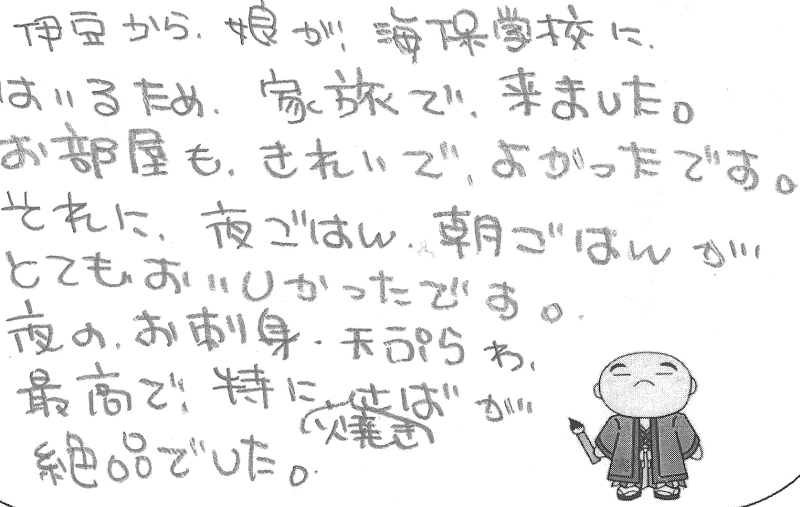 伊豆から、娘が、海保学校に、
はいるため、家族で、来ました。
お部屋も、きれいで、よかったです。
それに、夜ごはん、朝ごはんが
とてもおいしかったです。
夜の、お刺身・天ぷらわ、
最高で、特に焼きさばが
絶品でした。